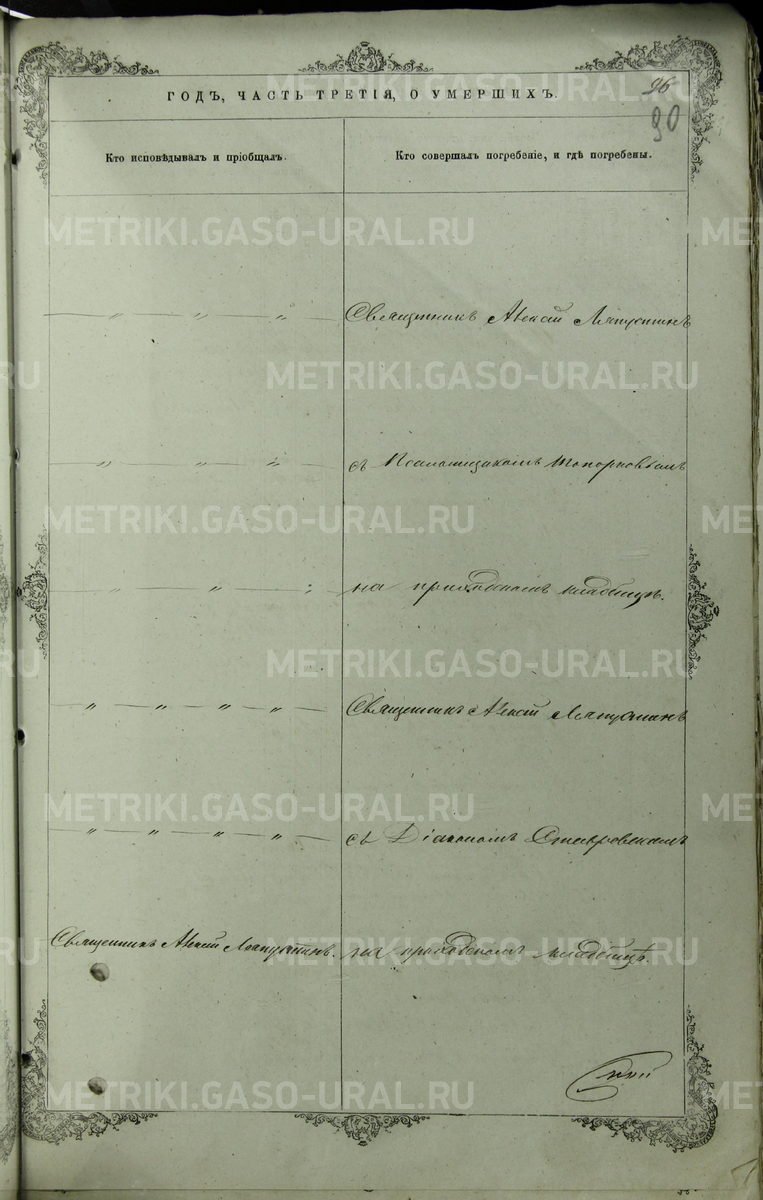 96
ГОДЪ, ЧАСТЬ ТРЕТІЯ, О УМЕРШИХЪ.
90
Кто исповѣдывалъ и пріобщалъ.
Кто совершалъ погребеніе, и гдѣ погребены.
METRIKI.GASO-URAL.RU
Священникъ Алексій Ляпустинъ
METRIKI.GASO-URAL.RU
съ Псаломщикомъ Топорковымъ
METRIKI.GASO-URAL.RU
на приходскомъ кладбищѣ.
METRIKI.GASO-URAL.RU
Священникъ Алексій Ляпустинъ
METRIKI.GASO-URAL.RU
съ Діакономъ Ставровскимъ
Священникъ Алексій Ляпустинъ.
на приходскомъ кладбищѣ.
METRIKI.GASO-URAL.RU
METRIKI.GASO-URAL.RU